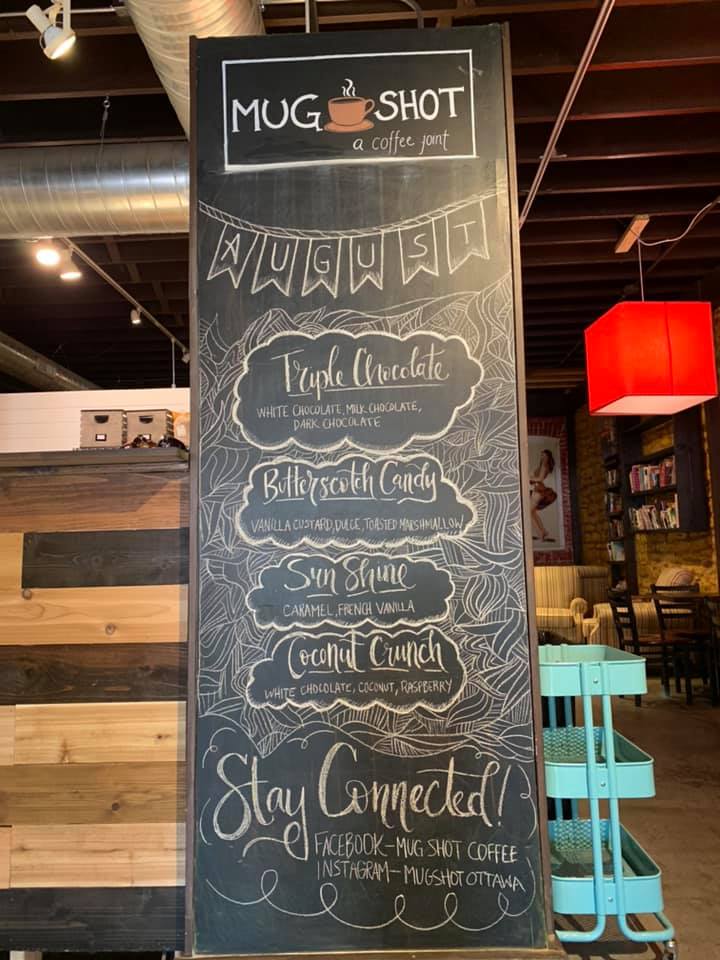 MUG SHOT
a coffee joint
AUGUST
Triple Chocolate
WHITE CHOCOLATE, MILK CHOCOLATE,
DARK CHOCOLATE
Butterscotch Candy
VANILLA CUSTARD, DULCE, TOASTED MARSHMALLOW
Sun Shine
CARAMEL, FRENCH VANILLA
Coconut Crunch
WHITE CHOCOLATE, COCONUT, RASPBERRY
Stay Connected!
FACEBOOK-MUG SHOT COFFEE
INSTAGRAM-MUGSHOTOTTAWA